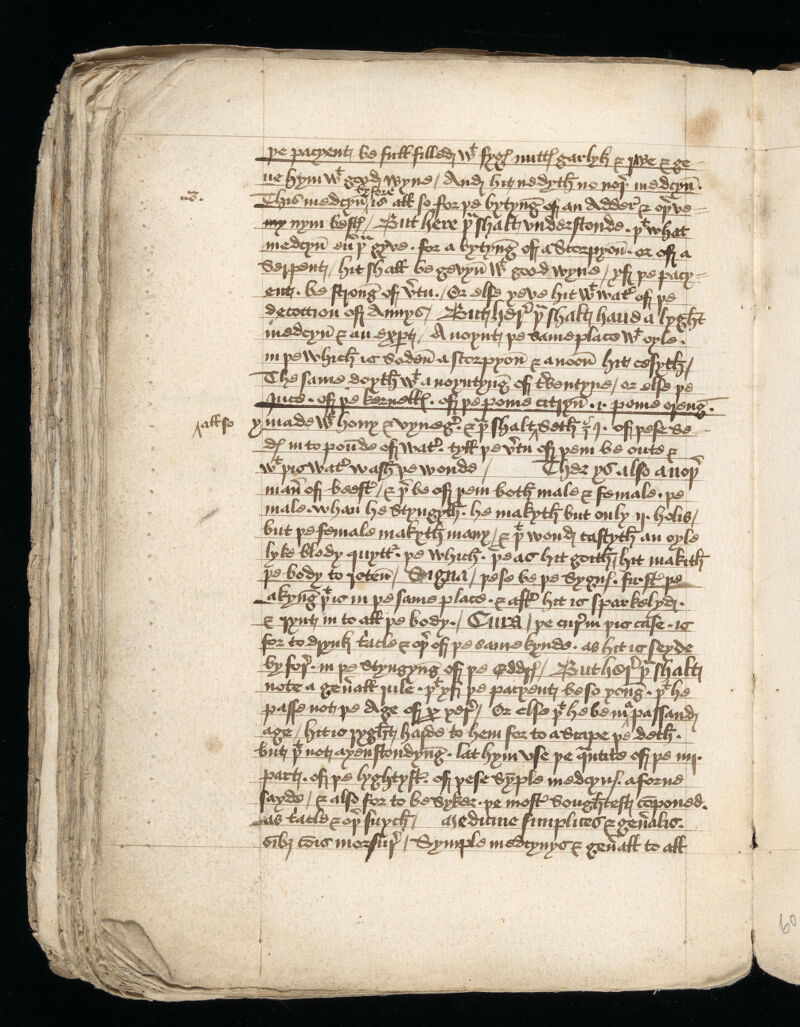 þe pacyent be fulfilled wt fyges nuttes garlyk & rwe & ge-
ue hym wt good wyne / And hit nedyth no noþer medcyn.
nō.
before
This medcyn is also for þe bytyng of an Adder & oþ ve-
nym bestes / But here þu shalt vnderstonde . þt what
medcyn euer þu gyve . for a bytyng of a Scorpyon . or of a
Serpent / hit shall be gevyn wt good wyne / yf þe pacy-
ent . be strong of vertu . / Or else yeve hit wt water of þe
decoction of Annys / But here þu shalt haue a lyght
medcyn & an expert / Anoynt þe same place wt oyle .
in þe which is soden a scorpyon & anoon hit cesyth /
The same doyth wt anoyntyng of terventyne / or else þe
Juce . of þe kernelles . of þe pome citryn . i . pome oreng .
allso
y made wt hony & vyneger . & þu shalt seth of pese se-
des in to pounde of water . tyll þe vertu of þem be oute &
wt þis water wash þe wonde / Ther ys . also anoþer
maner of beest / & þer be of þem both male & female . þe
male . whan he styngyth . he makyth but only ij . holis /
but þe female makyth many / & þt wond castyth an oyle
lyke blody quytter . þe which . þer as hit goith / hit makith
þe body to roten / Signa / þese be þe sygnes . first þe
akyng þt is in þe same place . & after hit is sparkelyd .
& rynt in to all þe body . / Cura / þe cure in þis case . is
for to drynk tacle & oþer of þe same kynde . as hit is seyde
byfore . in þe styngyng of þe Edders / But here þu shalt
note a generall rule . þt yf þe pacyent be so yong . þt he
passe not þe age of xx yeres / Or else þt he be in passand
age / hit is ryght harde to hem for to ascape þe deth .
but þt not ayenstondyng . lat hym vse þe quantite of þe iiij .
part . of þe lyghtyst . of þese symple medcynes . aforne
sayde / & also for to be syker . þe most soughtest componed .
as tacle & oþer suych / Medicine simplices & generalis .
oibz cois morsur / Symple medcynys & generall to all